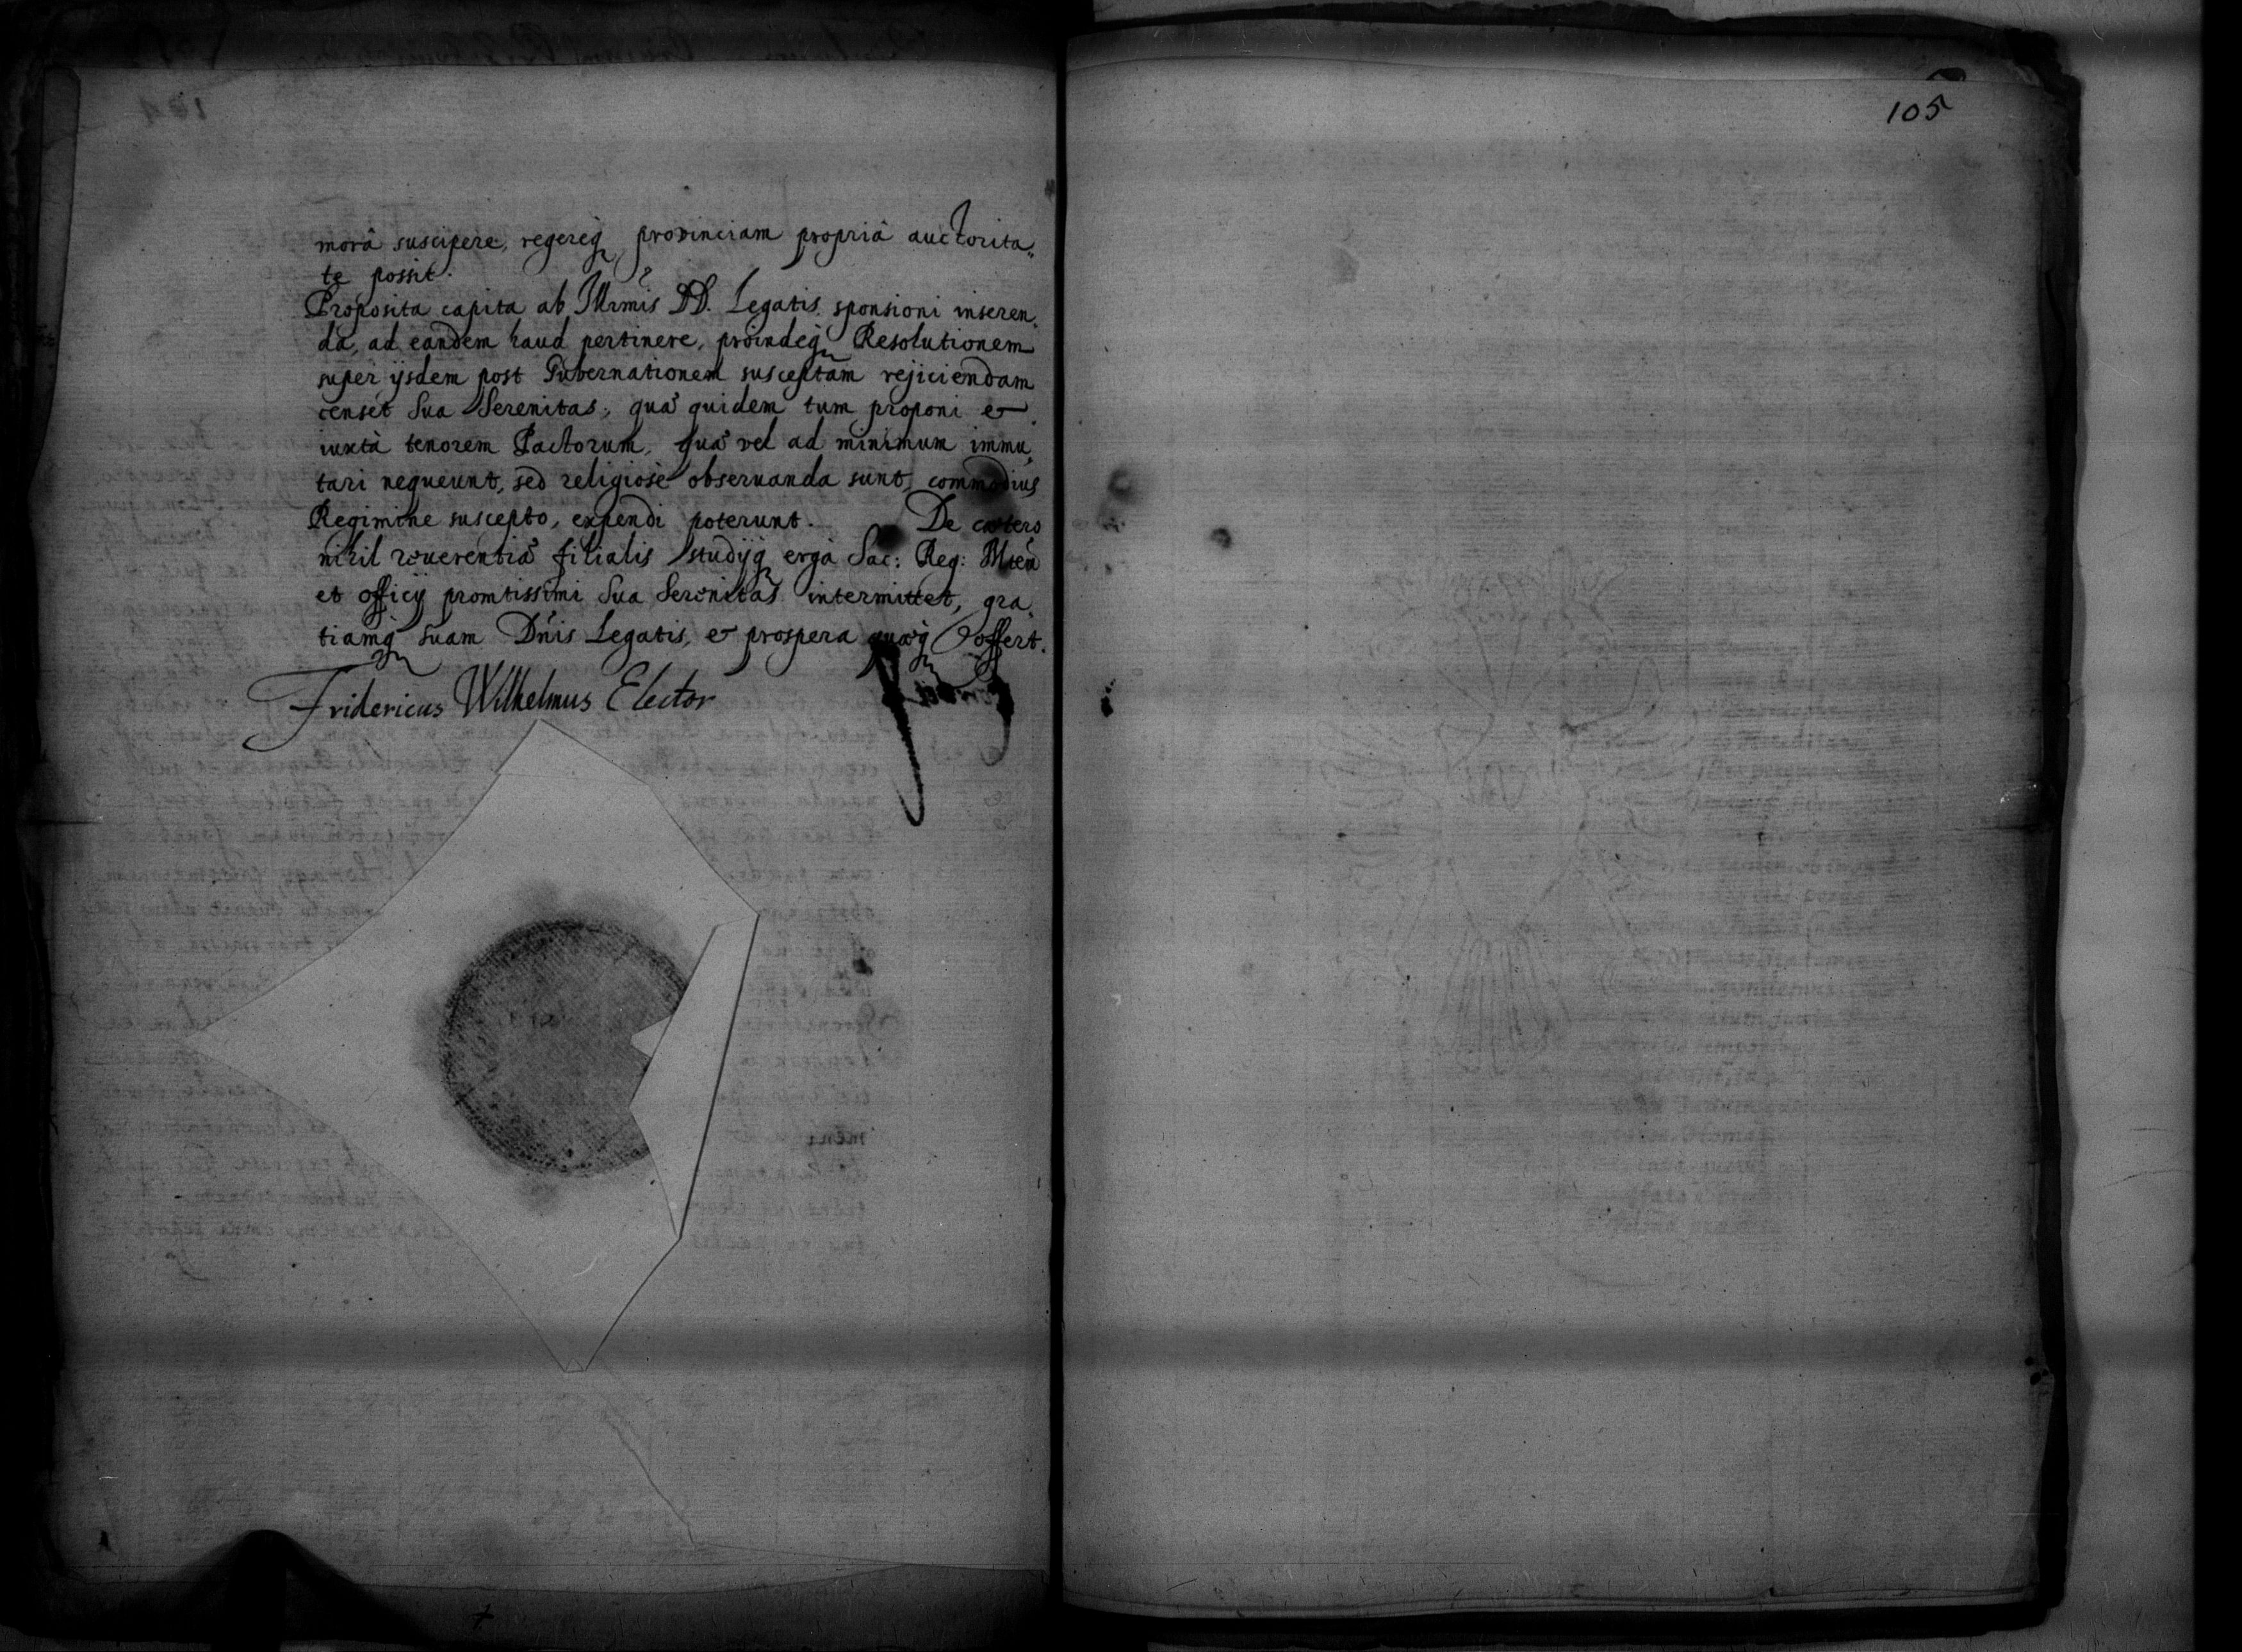 morâ suscipere, regereq́ provinciam propriâ auctorita„
te possit.
Proposita capita ab Illrmis DD. Legatis sponsioni inseren„
da, ad eandem haud pertinere, proindeq́ Resolutionem
super ijsdem post Gubernationem susceptam rejiciendam
censet Sua Serenitas, quæ quidem tum proponi et
iuxtà tenorem Pactorum, quæ vel ad minimum immu„
tari nequeunt, sed religiosè obseruanda sunt, commodius
Regimine suscepto, expendi poterunt. De cætero
nihil reuerentiæ filialis studijq́ ergà Sac: Reg: Mtem
et officij promtissimi Sua Serenitas intermittet, gra„
tiamq́ suam Dn̄is Legatis, et prospera quæq́ offert.
Fridericus Wilhelmus Elector
105